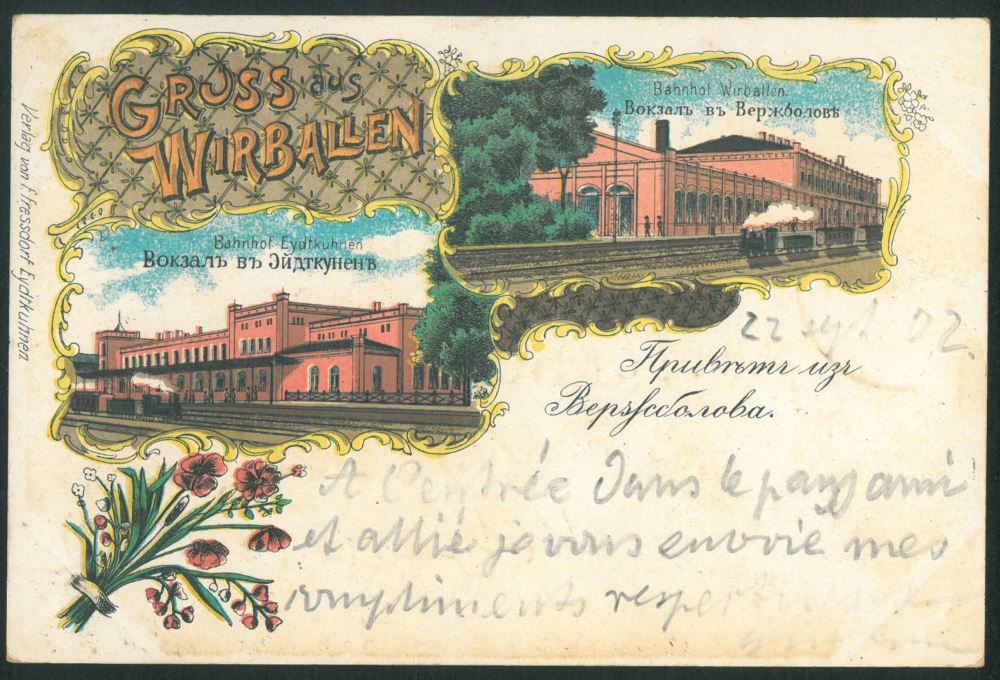 GRUSS aus
WIRBALLEN
Bahnhof Wirballen.
Вокзалъ въ Вержболовѣ
Bahnhof Eydtkuhnen
Вокзалъ въ Эйдткуненѣ
Verlag von F. Fressdorf Eydtkuhnen
22 02.
Привѣтъ изъ
Вержболова.
A l'entrée dans le pays ami
et allié je vous envoie mes
compliments